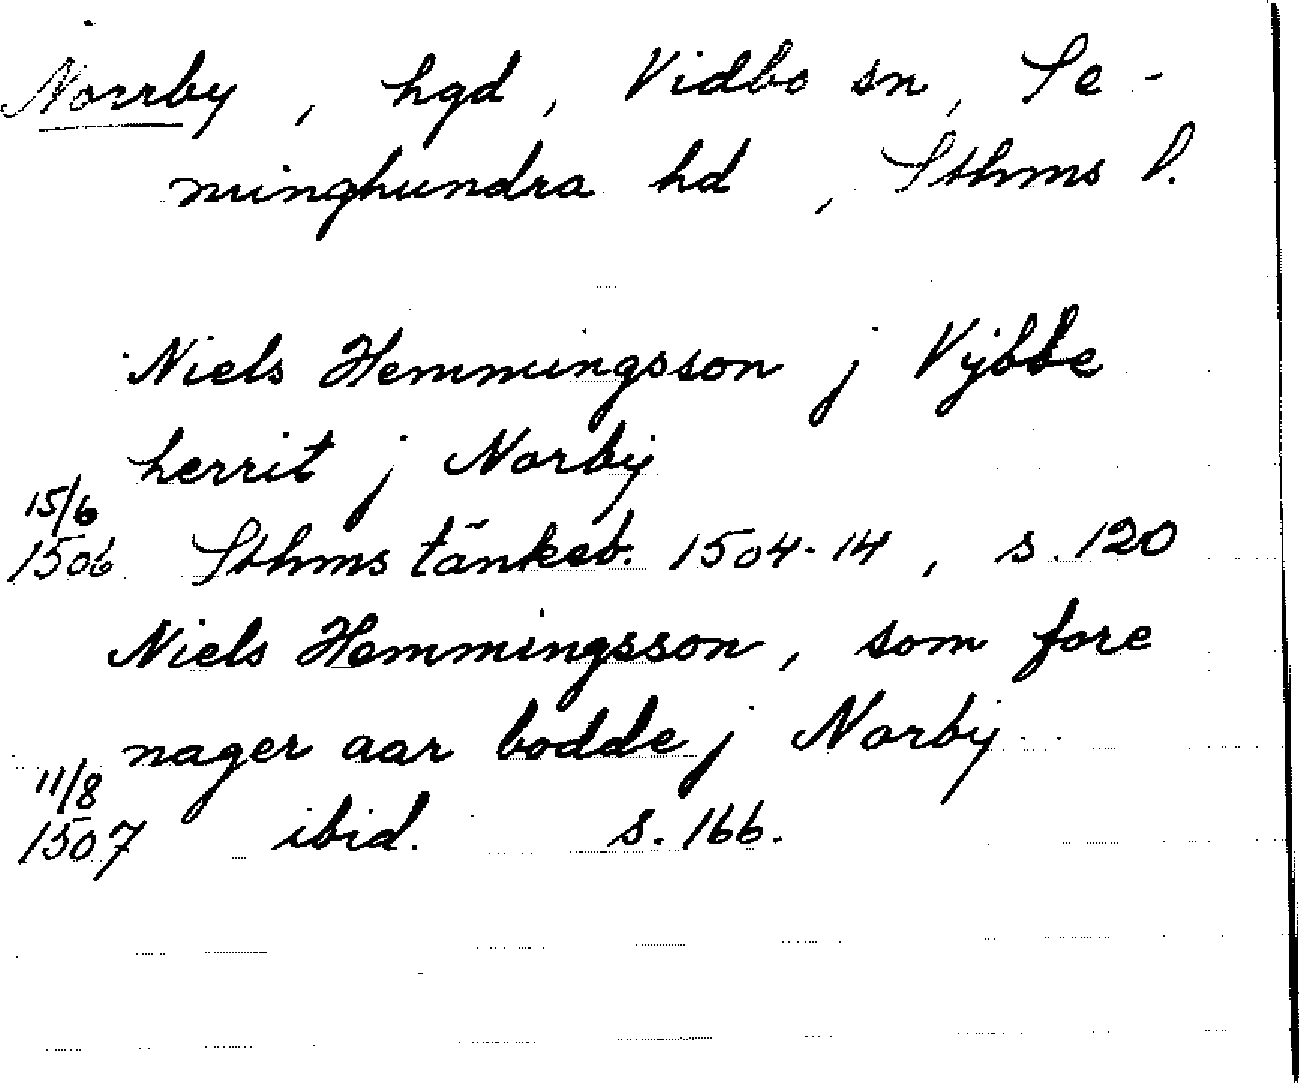 Norrby, hgd, Vidbo sn, Se-
minghundra hd, Sthms l.
Niels Hemmingsson j Vijbbe
herrit j Norby
15/6
1506 Sthms tänkeb. 1504-14, s. 120
Niels Hemmingsson, som fore
nager aar bodde j Norby
11/8
1507 ibid. s. 166.